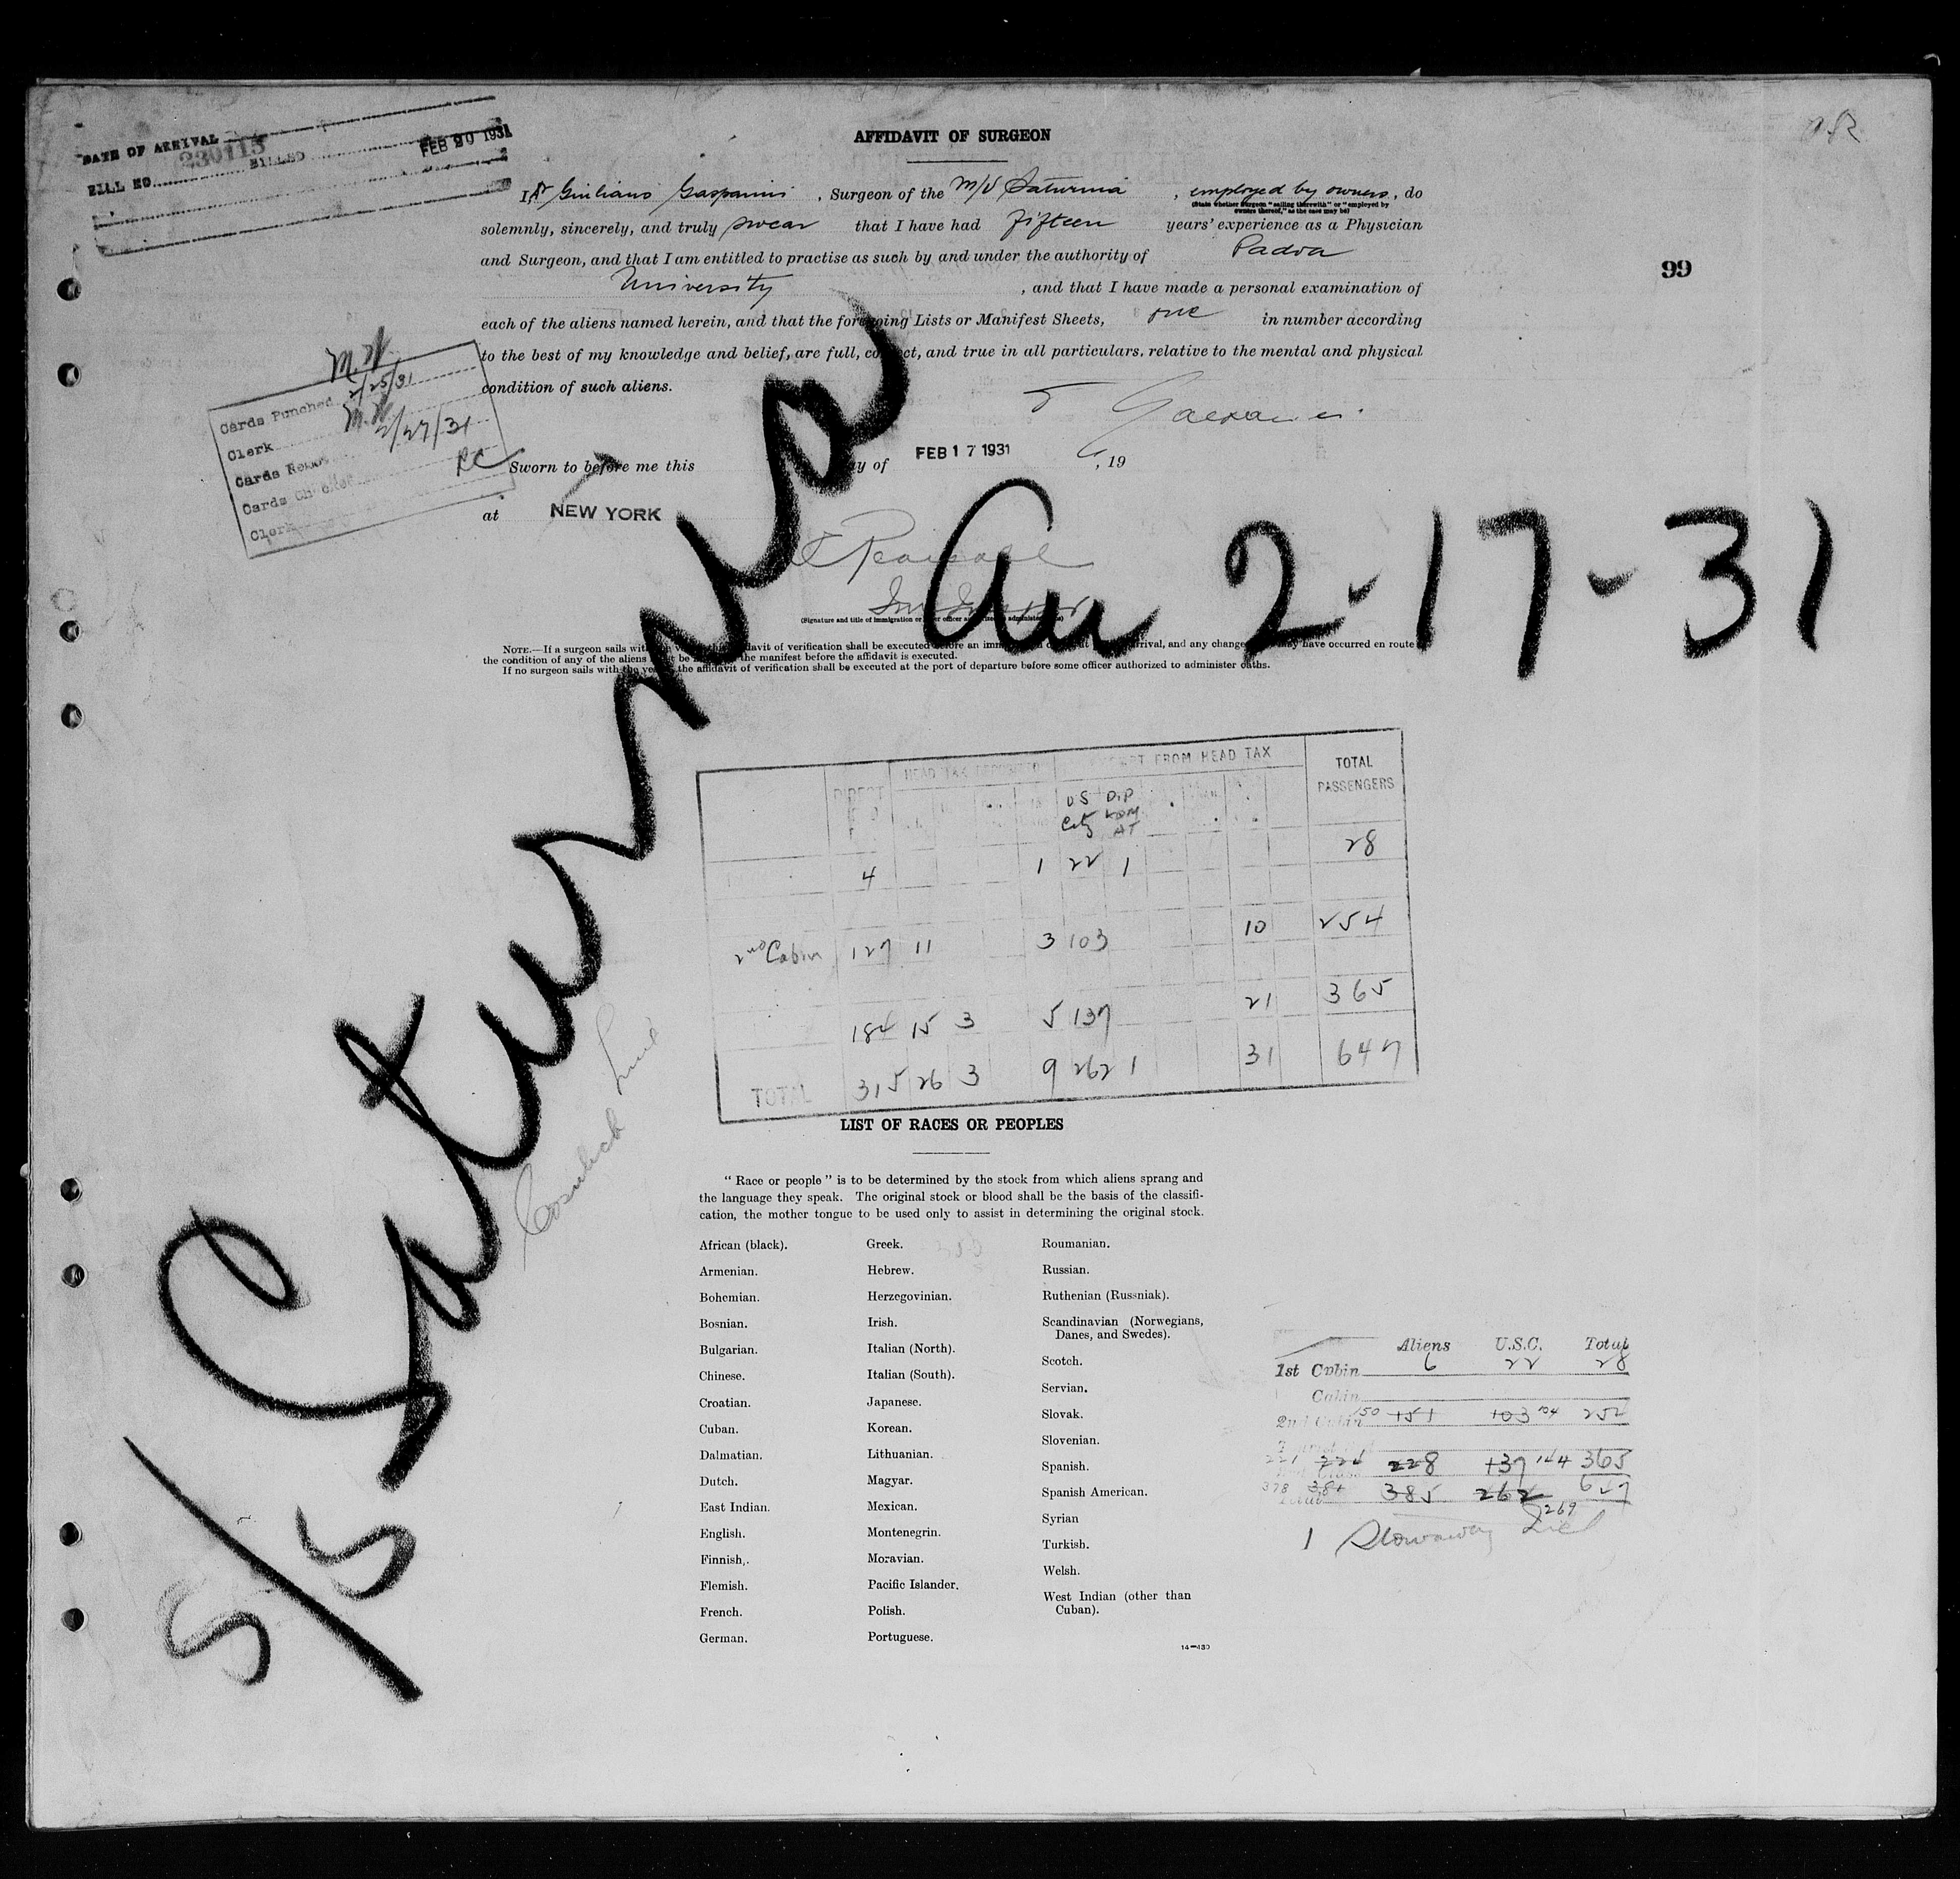 DATE OF ARRIVAL
230115
BILL NO. BILLED FEB 20 1931
AFFIDAVIT OF SURGEON
99
I, Dr Giuliano Gasparini, Surgeon of the M/V Saturnia, employed by owners, do
(State whether Surgeon "sailing therewith" or "employed by
owners thereof," as the case may be)
solemnly, sincerely, and truly swear that I have had fifteen years' experience as a Physician
and Surgeon, and that I am entitled to practise as such by and under the authority of Padova
University, and that I have made a personal examination of
each of the aliens named herein, and that the foregoing Lists or Manifest Sheets, one in number according
to the best of my knowledge and belief, are full, correct, and true in all particulars, relative to the mental and physical
condition of such aliens.
M.W.
Cards Punched 2/25/31
Clerk M.W.
2/27/31
Cards Checked RC
Clerk
Sworn to before me this day of FEB 17 1931, 19
at NEW YORK
(Signature and title of immigration or other officer authorized to administer oaths)
NOTE.—If a surgeon sails with the vessel, the affidavit of verification shall be executed before an immigration officer at port of arrival, and any change may have occurred en route
the condition of any of the aliens must be the manifest before the affidavit is executed.
If no surgeon sails with the vessel the affidavit of verification shall be executed at the port of departure before some officer authorized to administer oaths.
S/S Saturnia
Arr 2-17-31
Cosulich Line
DIRECT HEAD TAX DEPOSITED EXEMPT FROM HEAD TAX TOTAL PASSENGERS
US Citz DIPLOMAT
4 1 22 1 28
2nd Cabin 127 11 3 103 10 254
184 15 3 5 137 21 365
TOTAL 315 26 3 9 262 1 31 647
LIST OF RACES OR PEOPLES
"Race or people" is to be determined by the stock from which aliens sprang and
the language they speak. The original stock or blood shall be the basis of the classifi-
cation, the mother tongue to be used only to assist in determining the original stock.
African (black).
Armenian.
Bohemian.
Bosnian.
Bulgarian.
Chinese.
Croatian.
Cuban.
Dalmatian.
Dutch.
East Indian.
English.
Finnish.
Flemish.
French.
German.
Greek.
Hebrew.
Herzegovinian.
Irish.
Italian (North).
Italian (South).
Japanese.
Korean.
Lithuanian.
Magyar.
Mexican.
Montenegrin.
Moravian.
Pacific Islander.
Polish.
Portuguese.
Roumanian.
Russian.
Ruthenian (Russniak).
Scandinavian (Norwegians,
Danes, and Swedes).
Scotch.
Servian.
Slovak.
Slovenian.
Spanish.
Spanish American.
Syrian
Turkish.
Welsh.
West Indian (other than
Cuban).
14—430
Aliens U.S.C. Total
1st Cabin 6 22 28
Cabin
2nd Cabin 150 151 103 104 254
221 224 228 137 144 365
Total 378 384 385 262 647
269
1 Stowaway